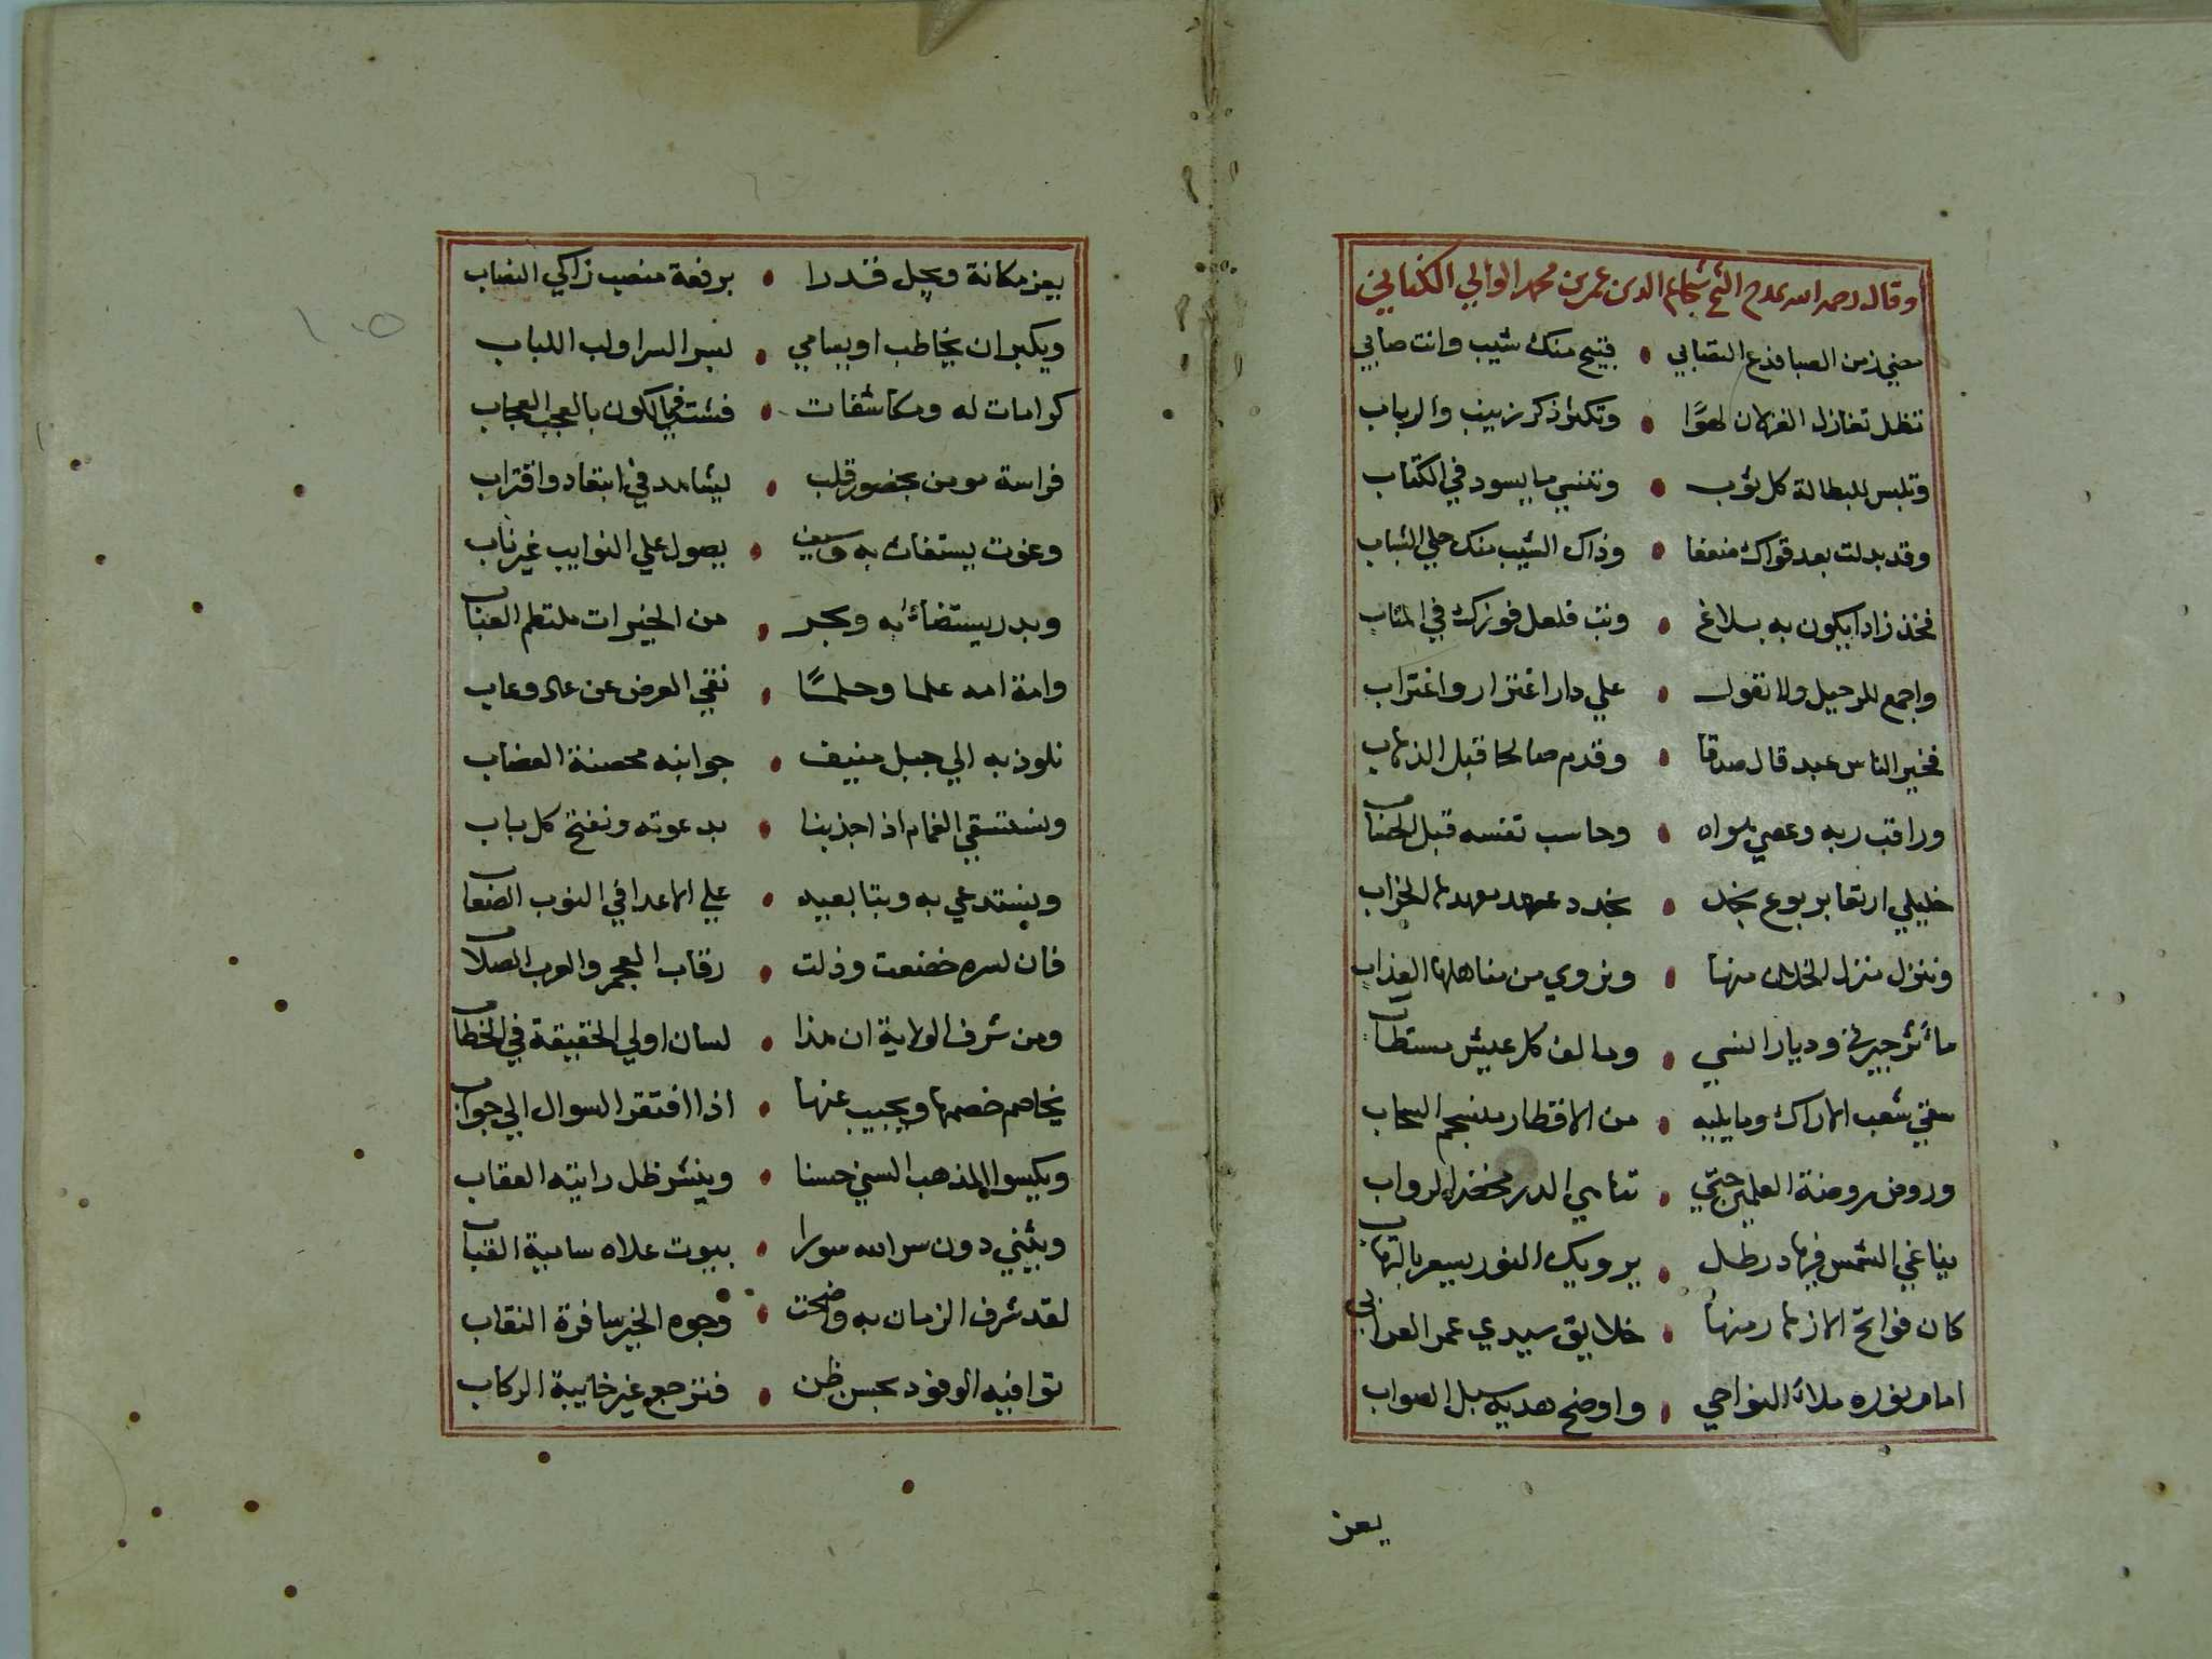 وقال رحمه الله يمدح الشيخ شجاع الدين عمر بن محمد الوالي الكناني
مضي زمن الصبا فدع التصابي • قبيح منك شيب وانت صابي
تظل تغازل الغزلان لهوًا • وتكثر ذكر زينب والرباب
وتلبس للبطالة كل ثوب • وتنسي ما يسود في الكتاب
وقد بدلت بعد قواك ضعفا • وذاك الشيب منك حلي الشباب
فخذ زادا يكون به بلاغ • وتب فلعل فوزك في المتاب
واجمع للرحيل ولا تعول • علي دار اغترار واغتراب
فخير الناس عبد قال صدقا • وقدم صالحا قبل الذهاب
وراقب ربه وعصي هواه • وحاسب نفسه قبل الحساب
خليلي اربعا بربوع نجد • نجدد عهد معهدها الخراب
وننزل منزل الخلان منها • ونروي من مناهلها العذاب
مآثر جيرتي وديار انسي • ومالف كل عيش مستطاب
سقي شعب الاراك وما يليه • من الاقطار منسجم السحاب
وروض روضة العلمين حتي • تناهي الدر مخضر الرواب
يناغي الشمس فيها در طل • يرويك النور يبسم بالتهاب
كان فوائح الازهار منها • خلايق سيدي عمر العرابي
امام نوره ملأ النواحي • واوضح هديه سبل الصواب
يعز
يعز مكانة ويجل قدرا • برفعة منصب زاكي النصاب
ويكبر ان يخاطب او يسامي • بسر السر او لب اللباب
كرامات له ومكاشفات • فشت في الكون بالعجب العجاب
فراسة مومن بحضور قلب • يشاهد في ابتعاد واقتراب
وغوث يستغاث به وسيف • يصول علي النوايب غير ناب
وبدر يستضاء به وبحر • من الخيرات ملتطم العباب
وامة امه علما وحلمًا • نقي العرض عن عار وعاب
نلوذ به الي جبل منيف • جوانبه محصنة الهضاب
ونستسقي الغمام اذا جدبنا • بدعوته ونفتح كل باب
ونستدعي به وبتابعيه • علي الاعدا في النوب الصعاب
فان لسره خضعت وذلت • رقاب العجم والعرب الصلاب
ومن شرف الولاية ان هذا • لسان اولي الحقيقة في الخطاب
يخاصم خصمها ويجيب عنها • اذا افتقر السوال الي جواب
ويكسوا المذهب السني حسنا • وينشر ظل رايته العقاب
ويبني دون سر الله سورا • بيوت علاه سامية القباب
لقد شرف الزمان به واضحت • وجوه الخير سافرة النقاب
توافيه الوفود بحسن ظن • فترجع غير خايبة الركاب
١٠٥